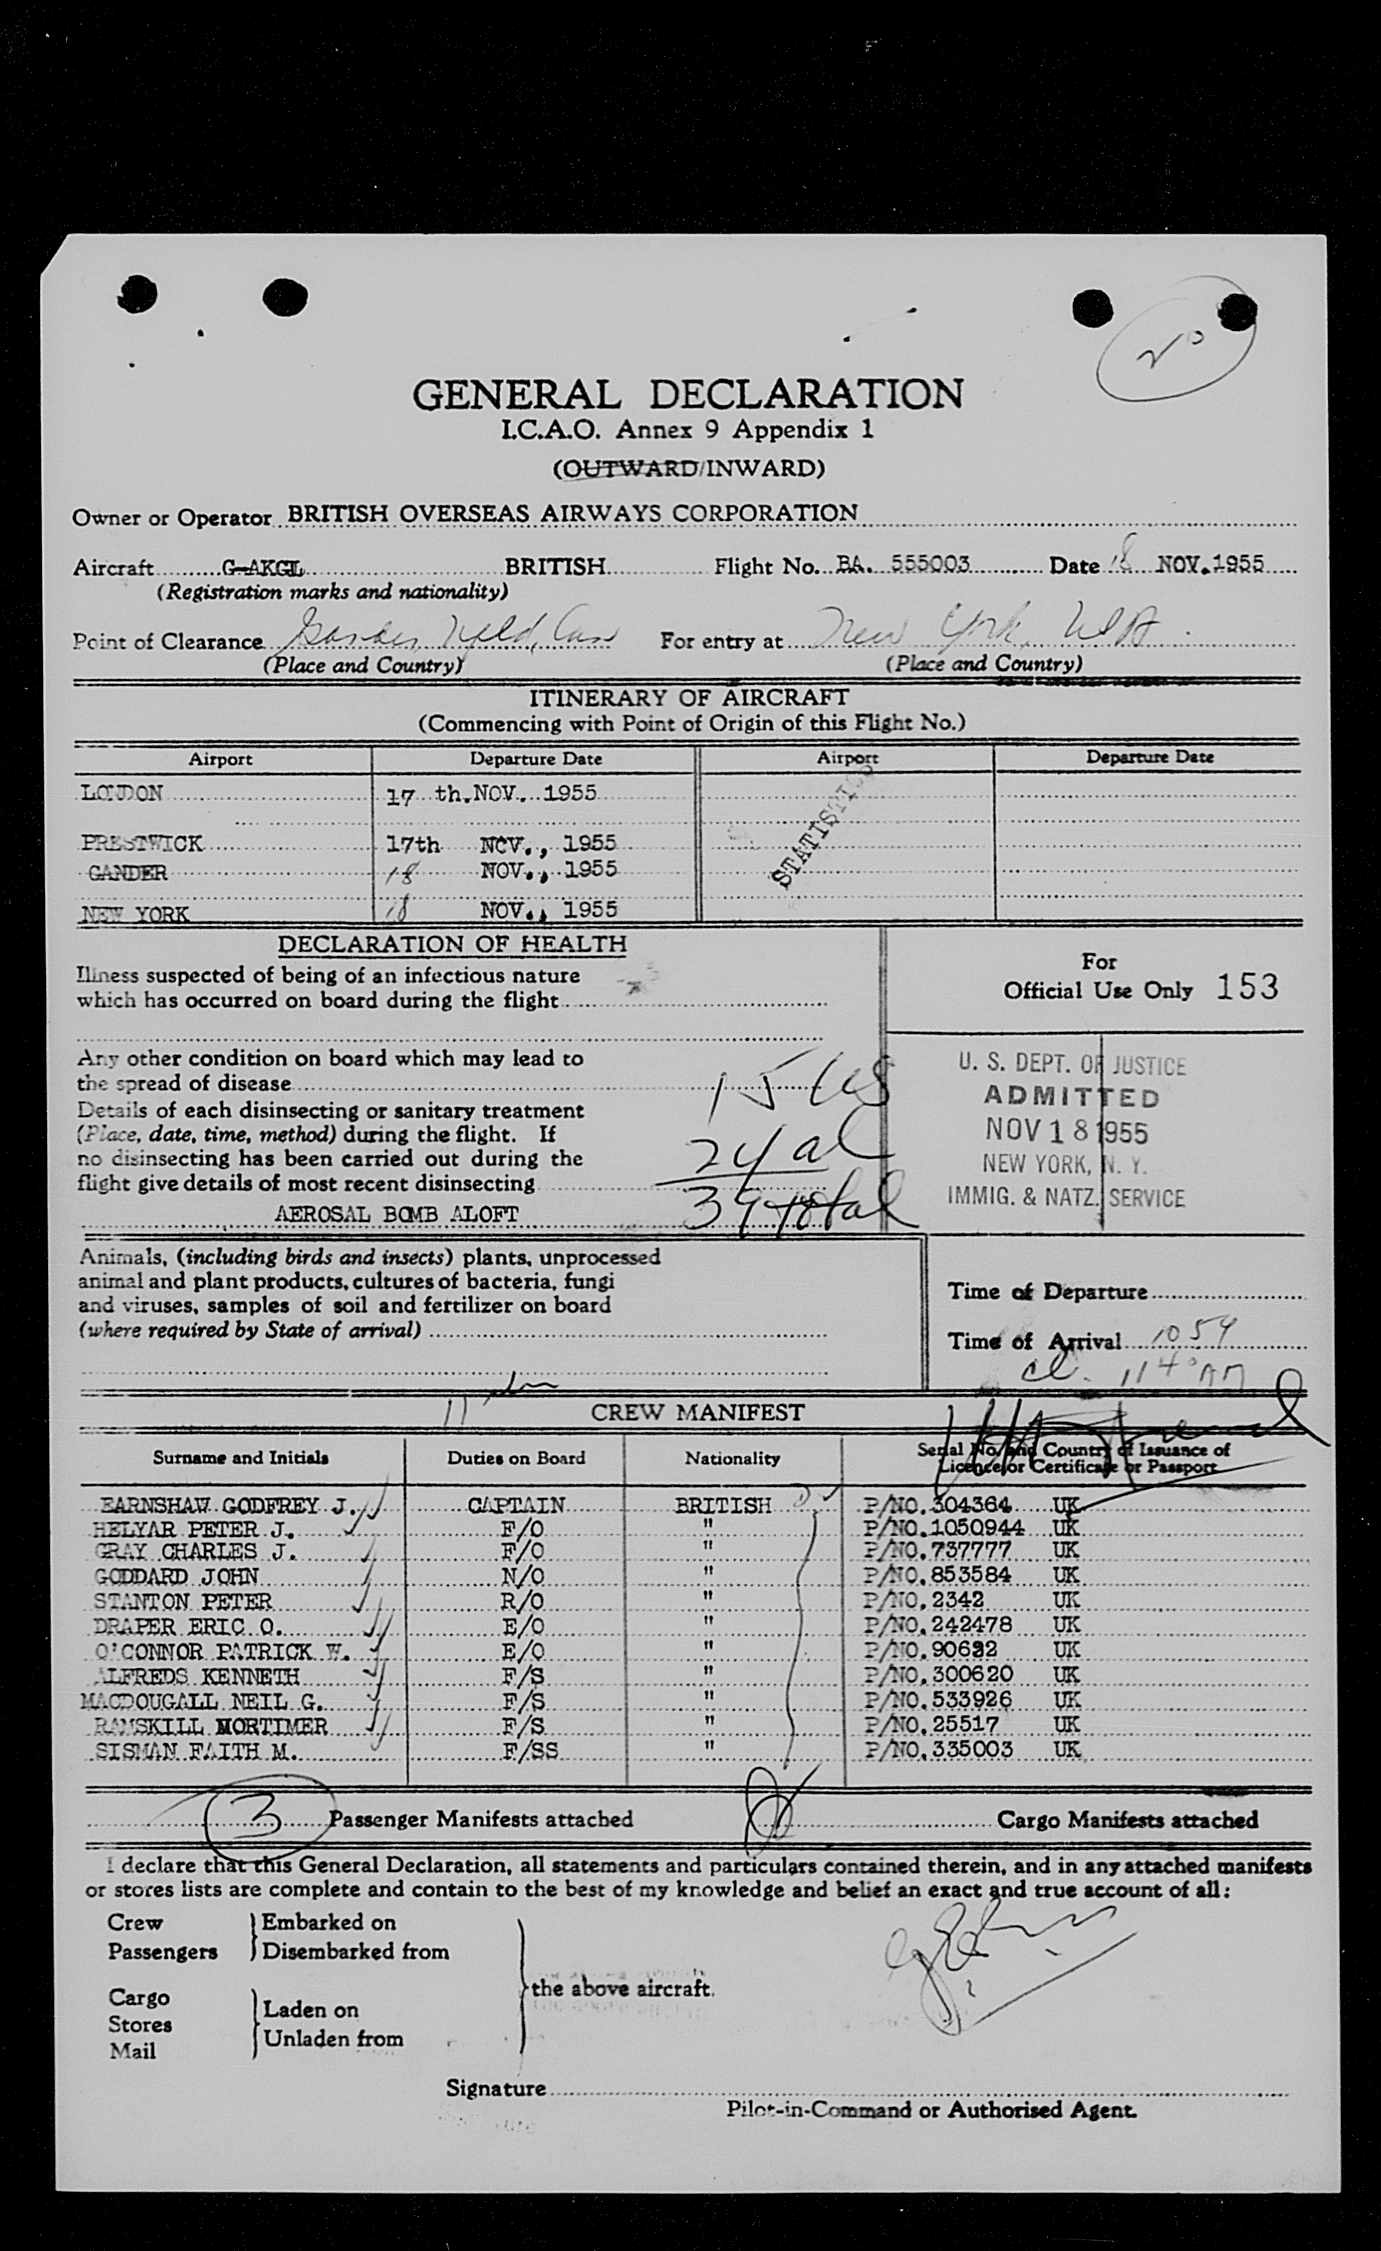 20
GENERAL DECLARATION
I.C.A.O. Annex 9 Appendix 1
(OUTWARD/INWARD)
Owner or Operator BRITISH OVERSEAS AIRWAYS CORPORATION
Aircraft G-AKGL BRITISH Flight No. BA. 555003 Date 18 NOV. 1955
(Registration marks and nationality)
Point of Clearance Gander, Nfld, Can For entry at New York, USA.
(Place and Country) (Place and Country)
ITINERARY OF AIRCRAFT
(Commencing with Point of Origin of this Flight No.)
Airport Departure Date Airport Departure Date
LONDON 17 th. NOV. 1955
PRESTWICK 17th NOV., 1955
STATISTICS
GANDER 18 NOV., 1955
NEW YORK 18 NOV., 1955
DECLARATION OF HEALTH
Illness suspected of being of an infectious nature
which has occurred on board during the flight
For
Official Use Only 153
Any other condition on board which may lead to
the spread of disease
Details of each disinsecting or sanitary treatment
(Place, date, time, method) during the flight. If
no disinsecting has been carried out during the
flight give details of most recent disinsecting
AEROSAL BOMB ALOFT
15 US
24 al
39 total
U. S. DEPT. OF JUSTICE
ADMITTED
NOV 18 1955
NEW YORK, N. Y.
IMMIG. & NATZ. SERVICE
Animals, (including birds and insects) plants, unprocessed
animal and plant products, cultures of bacteria, fungi
and viruses, samples of soil and fertilizer on board
(where required by State of arrival)
Time of Departure
Time of Arrival 1059
cl. 1140 AM
11
CREW MANIFEST
Surname and Initials Duties on Board Nationality Serial No. and Country of Issuance of
Licence or Certificate or Passport
EARNSHAW GODFREY J. CAPTAIN BRITISH P/NO. 304364 UK
HELYAR PETER J. F/O " P/NO. 1050944 UK
GRAY CHARLES J. F/O " P/NO. 737777 UK
GODDARD JOHN N/O " P/NO. 853584 UK
STANTON PETER R/O " P/NO. 2342 UK
DRAPER ERIC O. E/O " P/NO. 242478 UK
O'CONNOR PATRICK W. E/O " P/NO. 90632 UK
ALFREDS KENNETH F/S " P/NO. 300620 UK
MACDOUGALL NEIL G. F/S " P/NO. 533926 UK
RAMSKILL MORTIMER F/S " P/NO. 25517 UK
SISMAN FAITH M. F/SS " P/NO. 335003 UK
3 Passenger Manifests attached Cargo Manifests attached
I declare that this General Declaration, all statements and particulars contained therein, and in any attached manifests
or stores lists are complete and contain to the best of my knowledge and belief an exact and true account of all:
Crew Embarked on
Passengers Disembarked from
the above aircraft.
Cargo
Stores Laden on
Mail Unladen from
Signature
Pilot-in-Command or Authorised Agent.